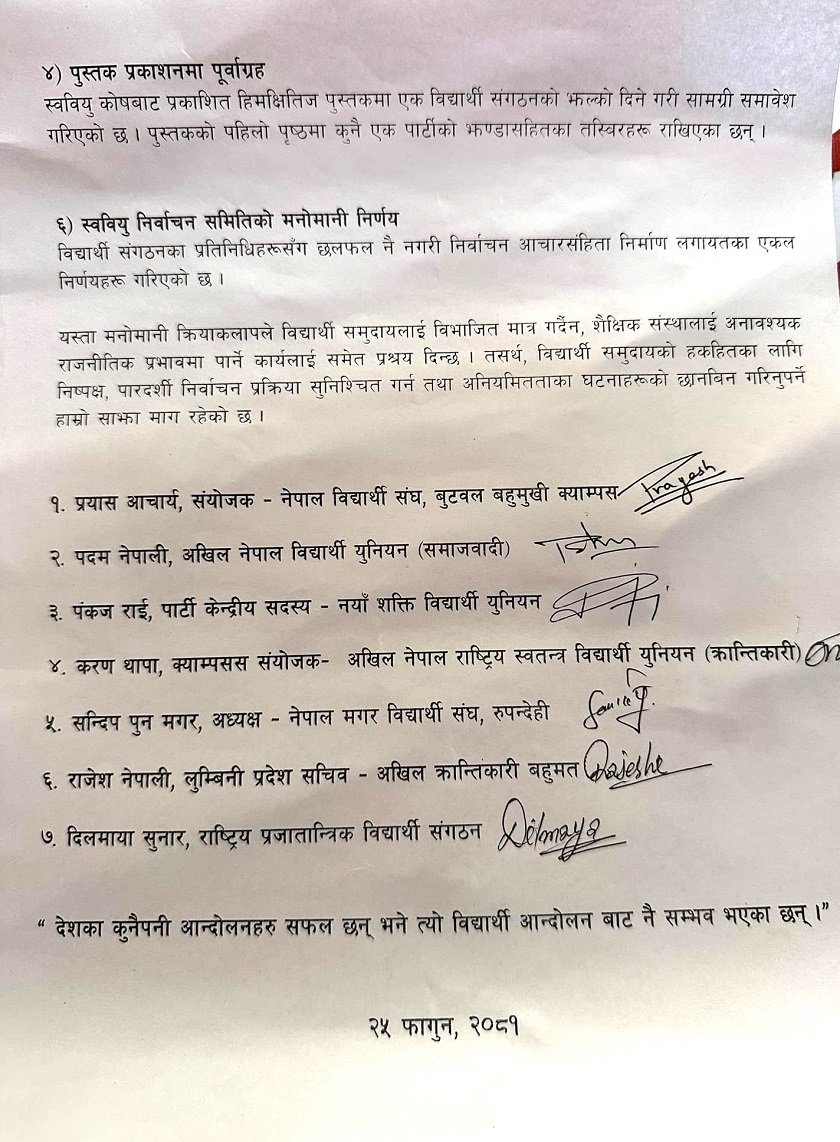 ४) पुस्तक प्रकाशनमा पूर्वाग्रह
स्ववियु कोषबाट प्रकाशित हिमक्षितिज पुस्तकमा एक विद्यार्थी संगठनको झल्को दिने गरी सामग्री समावेश
गरिएको छ । पुस्तकको पहिलो पृष्ठमा कुनै एक पार्टीको झण्डासहितका तस्विरहरू राखिएका छन् ।
६) स्ववियु निर्वाचन समितिको मनोमानी निर्णय
विद्यार्थी संगठनका प्रतिनिधिहरूसँग छलफल नै नगरी निर्वाचन आचारसंहिता निर्माण लगायतका एकल
निर्णयहरू गरिएको छ ।
यस्ता मनोमानी क्रियाकलापले विद्यार्थी समुदायलाई विभाजित मात्र गर्दैन, शैक्षिक संस्थालाई अनावश्यक
राजनीतिक प्रभावमा पार्ने कार्यलाई समेत प्रश्रय दिन्छ । तसर्थ, विद्यार्थी समुदायको हकहितका लागि
निष्पक्ष, पारदर्शी निर्वाचन प्रक्रिया सुनिश्चित गर्न तथा अनियमितताका घटनाहरूको छानविन गरिनुपर्ने
हाम्रो साझा माग रहेको छ ।
१. प्रयास आचार्य, संयोजक - नेपाल विद्यार्थी संघ, बुटवल बहुमुखी क्याम्पस
२. पदम नेपाली, अखिल नेपाल विद्यार्थी युनियन (समाजवादी)
३. पंकज राई, पार्टी केन्द्रीय सदस्य - नयाँ शक्ति विद्यार्थी युनियन
४. करण थापा, क्याम्पसस संयोजक- अखिल नेपाल राष्ट्रिय स्वतन्त्र विद्यार्थी युनियन (क्रान्तिकारी)
५. सन्दिप पुन मगर, अध्यक्ष - नेपाल मगर विद्यार्थी संघ, रुपन्देही
६. राजेश नेपाली, लुम्बिनी प्रदेश सचिव - अखिल क्रान्तिकारी बहुमत
७. दिलमाया सुनार, राष्ट्रिय प्रजातान्त्रिक विद्यार्थी संगठन Dilmaya
“ देशका कुनैपनी आन्दोलनहरु सफल छन् भने त्यो विद्यार्थी आन्दोलन बाट नै सम्भव भएका छन् ।”
२५ फागुन, २०८१